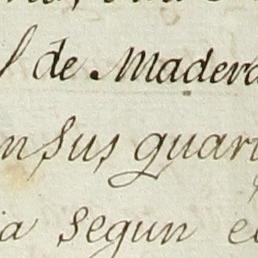 de Madera
sus quar
segun e